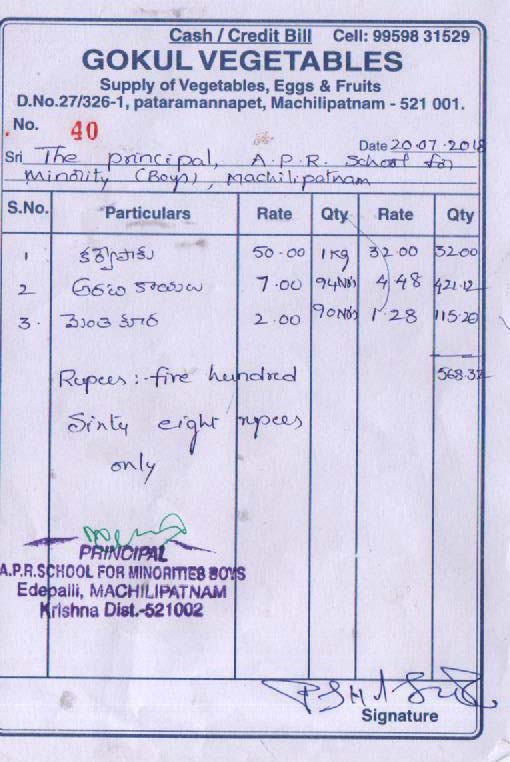 Cash / Credit Bill Cell: 99598 31529
GOKUL VEGETABLES
Supply of Vegetables, Eggs & Fruits
D.No.27/326-1, pataramannapet, Machilipatnam - 521 001.
No. 40
Date 20.07.2018
Sri The principal, A.P.R. School for
minority (Boys), Machilipatnam
S.No. Particulars Rate Qty Rate Qty
1 కర్వేపాకు 50.00 1 kg 32.00 32.00
2 అరటి కాయలు 7.00 94 Nos 4.48 421.12
3. మెంతికూర 2.00 90 Nos 1.28 115.20
568.32
Rupees:- five hundred
Sinty eight rupees
only
PRINCIPAL
A.P.R.SCHOOL FOR MINORITIES BOYS
Edepalli, MACHILIPATNAM
Krishna Dist.-521002
Signature